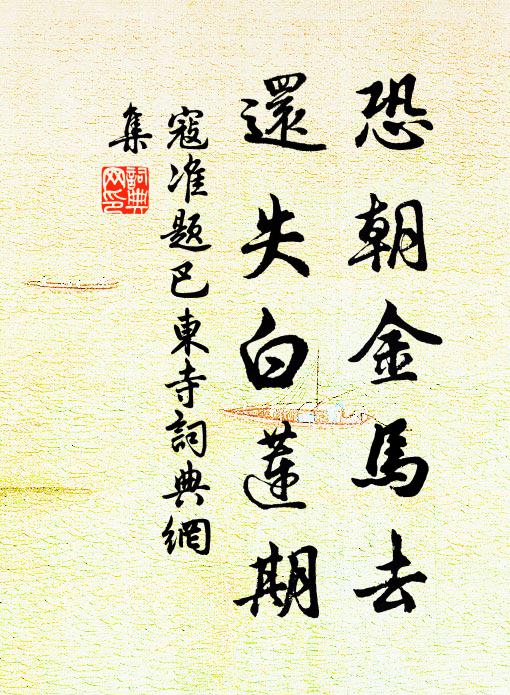 恐朝金馬去
還失白蓮期
寇准题巴東寺詞典網
集
詞典
网印